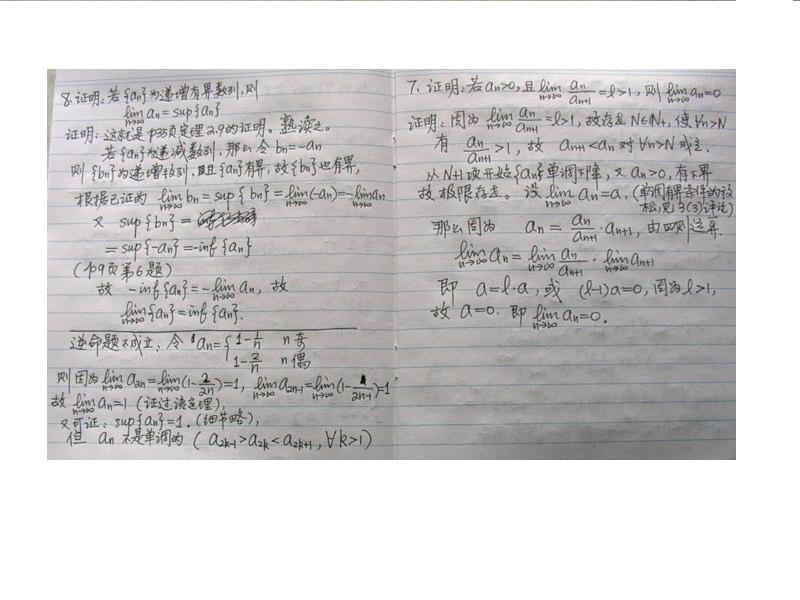 8. 证明:若{an}为递增有界数列,则
lim n→∞ an = sup{an}
证明:这就是P35页定理2.9的证明。熟读之。
若{an}为递减数列,那么令 bn=-an
则{bn}为递增数列,且{an}有界,故{bn}也有界,
根据已证的 lim n→∞ bn = sup{bn} = lim n→∞(-an) = -lim n→∞ an
又 sup{bn} =
= sup{-an} = -inf{an}
(P9页第6题)
故 -inf{an} = -lim n→∞ an, 故
lim n→∞{an} = inf{an}.
逆命题不成立:令 an = { 1-1/n n奇
1-2/n n偶
则因为 lim n→∞ a2n = lim n→∞(1-2/2n)=1, lim n→∞ a2n-1 = lim n→∞(1-1/2n-1)=1
故 lim n→∞ an=1 (证过该定理),
又可证: sup{an}=1. (细节略),
但 an 不是单调的 ( a2k-1 > a2k < a2k+1, ∀k>1)
7. 证明:若an>0,且 lim n→∞ an/an+1 = l>1, 则 lim n→∞ an=0
证明:因为 lim n→∞ an/an+1 = l>1, 故存在 N∈N+, 使∀n>N
有 an/an+1 >1, 故 an+1<an 对∀n>N成立.
从N+1项开始{an}单调下降, 又an>0, 有下界
故极限存在。设 lim n→∞ an = a, (单调有界条件的放
松,见3(3)评注)
那么因为 an = an/an+1 · an+1, 由四则运算
lim n→∞ an = lim n→∞ an/an+1 · lim n→∞ an+1
即 a=l·a, 或 (l-1)a=0, 因为l>1,
故 a=0. 即 lim n→∞ an=0.